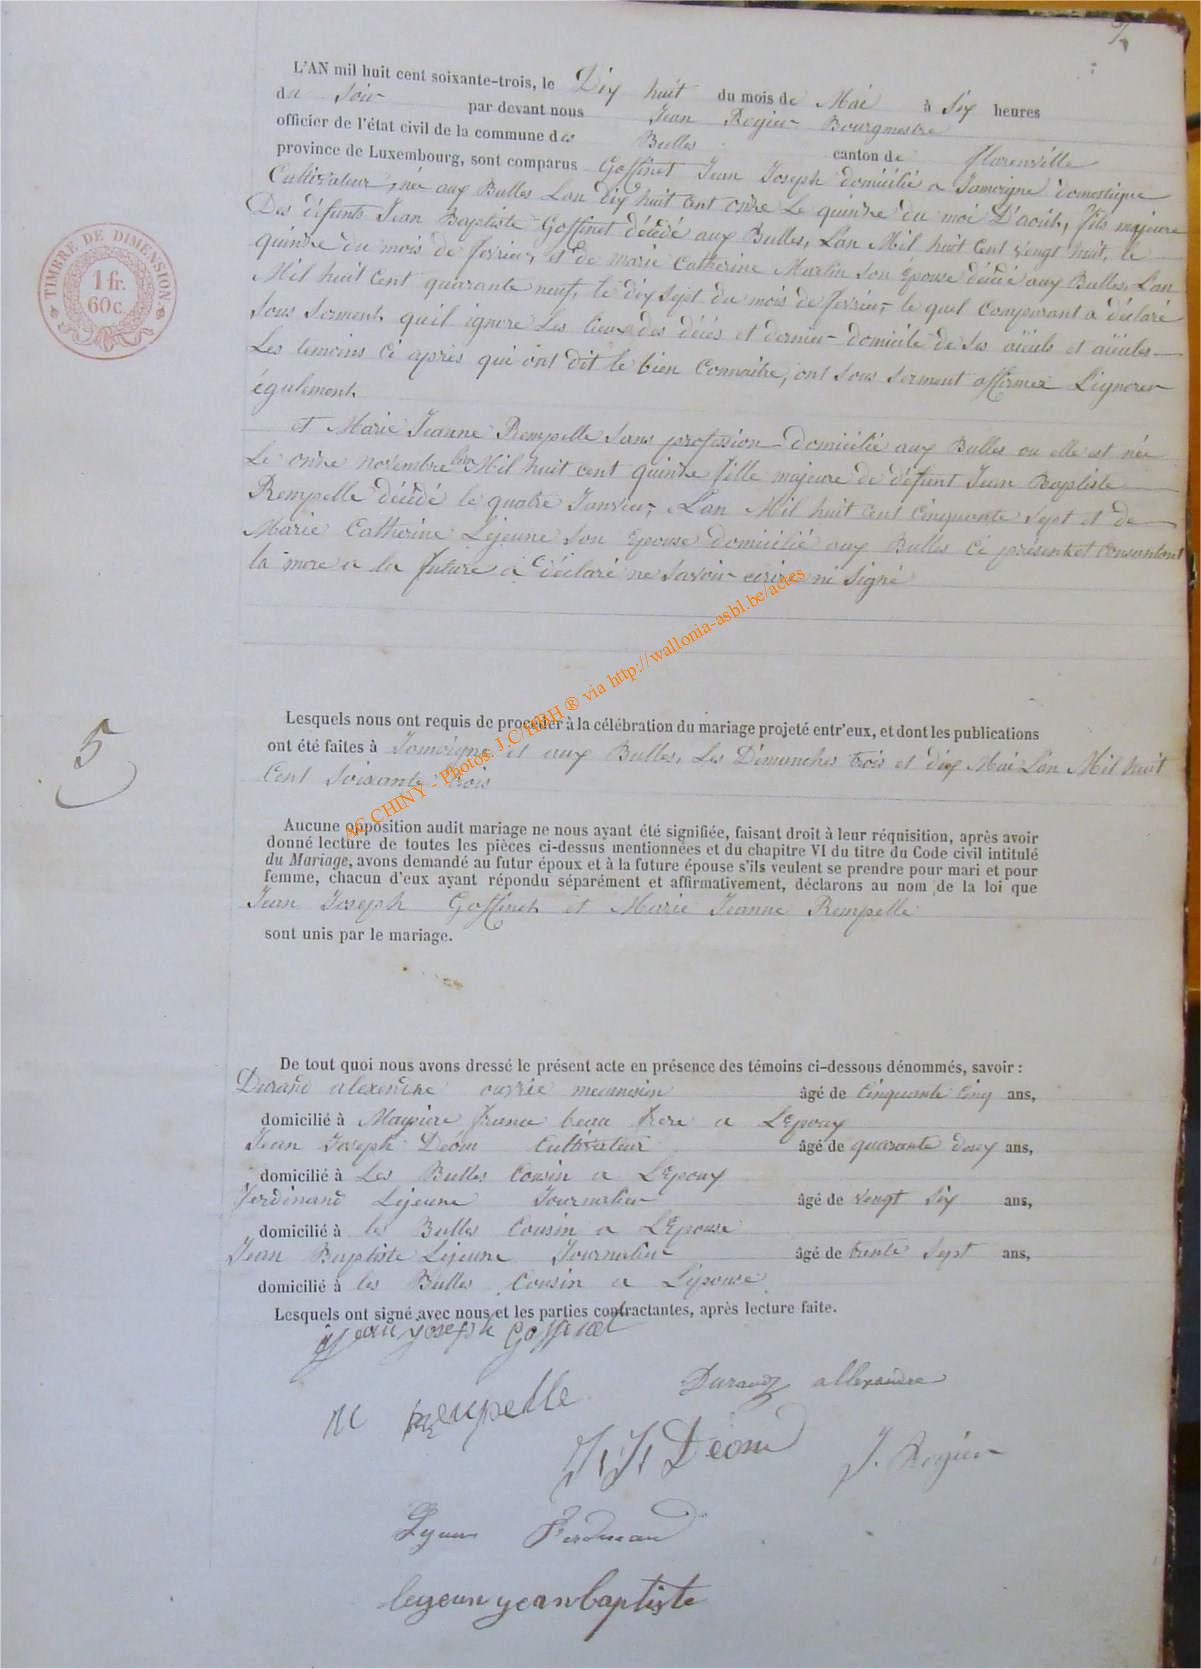 L'AN mil huit cent soixante-trois, le Dix huit du mois de Mai à Six heures
du Soir par devant nous Jean Rogier Bourgmestre
officier de l'état civil de la commune des Bulles canton de florenville
province de Luxembourg, sont comparus Goffinet Jean Joseph domicilié a Jamoigne domestique
Cultivateur, née aux Bulles Lan dix huit cent onze Le quinze du moi D'aoüt, fils majeure
Des défunts Jean Baptiste Goffinet décédé aux Bulles, Lan Mil huit cent vengt huit, le
quinze du mois de fevrier, et de marie Catherine Marlin Son Epouse décédé aux Bulles, Lan
Mil huit Cent quarante neuf, le dix sept du mois de fevrier, le quel Comparant a déclaré
Sous Serment quil ignore Les lieux des décés et dernier domicile de Ses aïeuls et aïeules
Les temoins Ci après qui ont dit le bien Connaitre, ont Sous Serment affirmer L'ignorer
également.
et Marie Jeanne Rempelle Sans profession domicilié aux Bulles ou elle est née
Le onze novembre lan Mil huit cent quinze fille majeure de défunt Jean Baptiste
Rempelle décédé le quatre Janvier, Lan Mil huit Cent Cinquante Sept et de
Marie Catherine Lejeune Son Epouse domicilié aux Bulles Ci présent et Consentant
la mere a la future a déclaré ne Savoir ecrire ni Signé
Lesquels nous ont requis de procéder à la célébration du mariage projeté entr'eux, et dont les publications
ont été faites à Jamoigne et aux Bulles, Les Dimanches trois et dix Mai Lan Mil huit
Cent Soixante trois
5
Aucune opposition audit mariage ne nous ayant été signifiée, faisant droit à leur réquisition, après avoir
donné lecture de toutes les pièces ci-dessus mentionnées et du chapitre VI du titre du Code civil intitulé
du Mariage, avons demandé au futur époux et à la future épouse s'ils veulent se prendre pour mari et pour
femme, chacun d'eux ayant répondu séparément et affirmativement, déclarons au nom de la loi que
Jean Joseph Goffinet et Marie Jeanne Rempelle
sont unis par le mariage.
De tout quoi nous avons dressé le présent acte en présence des témoins ci-dessous dénommés, savoir :
Durand alexendre ouvrié mecanisien âgé de Cinquante Cinq ans,
domicilié à france beau frere a L'Epoux
Jean Joseph Déom Cultivateur âgé de quarante deux ans,
domicilié à Les Bulles Cousin a L'Epoux
Ferdinand Lejeune Journalier âgé de vengt Six ans,
domicilié à les Bulles Cousin a L'Epouse
Jean Baptiste Lejeune Journalier âgé de trente Sept ans,
domicilié à les Bulles Cousin a L'épouse
Lesquels ont signé avec nous et les parties contractantes, après lecture faite.
jean joseph Goffinet
Durand allexandre
M rempelle
J. J. Déom
J. Rogier
Lejeune Ferdinand
lejeun yean baptiste
TIMBRE DE DIMENSION
1 fr.
60c.
AC CHINY - Photos. J.C/HBH ® via http://wallonia-asbl.be/actes